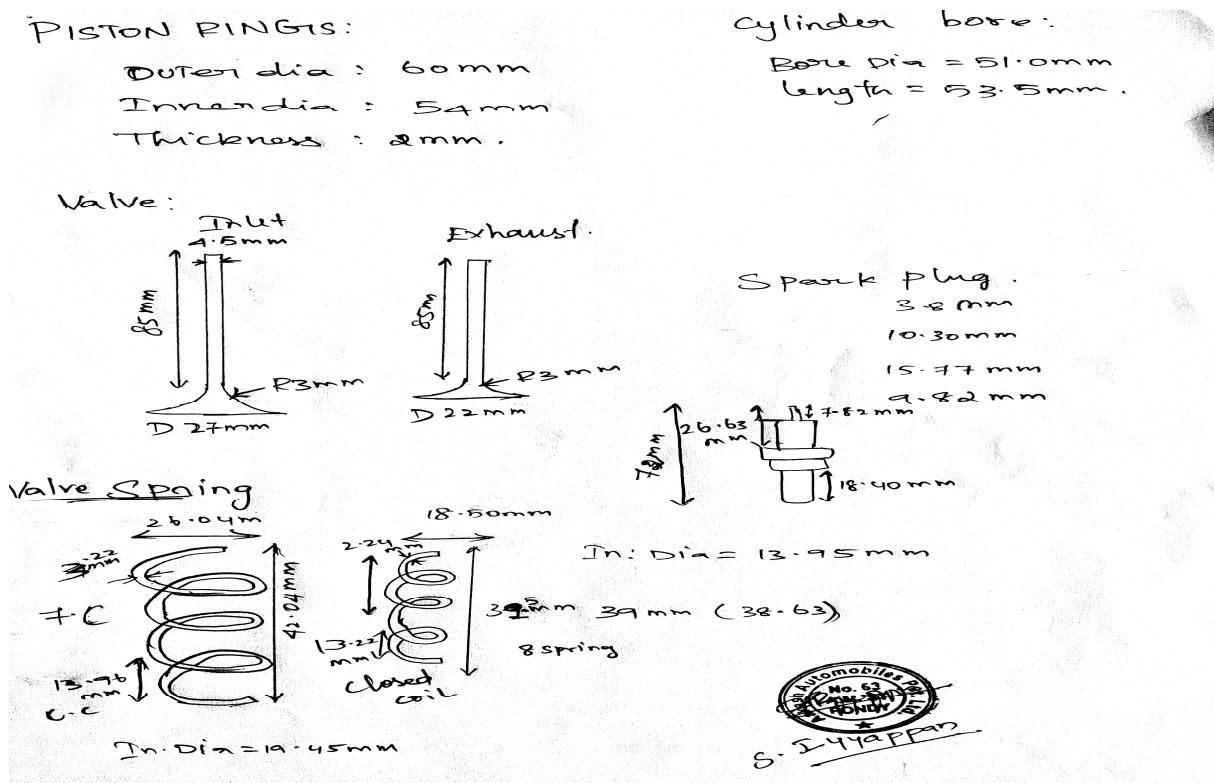 PISTON RINGS:
Outer dia : 60mm
Inner dia : 54mm
Thickness : 2mm.
Cylinder bore:
Bore Dia = 51.0mm
length = 53.5mm.
Valve:
Inlet
4.5mm
85mm
R3mm
D 27mm
Exhaust.
85m
R3mm
D 22mm
Spark plug.
3.8mm
10.30mm
15.77mm
9.82mm
7.82mm
26.63
mm
78mm
18.40mm
Valve Spring
26.04m
.22
mm
7.C
42.04mm
13.96
mm
C.C
In. Dia = 19.45mm
18.50mm
2.24
mm
13.22
mm
closed
coil
In: Dia = 13.95mm
39 mm (38.63)
8 spring
Automobiles Pvt. Ltd.
No. 63
HONDA
S. Iyyappan